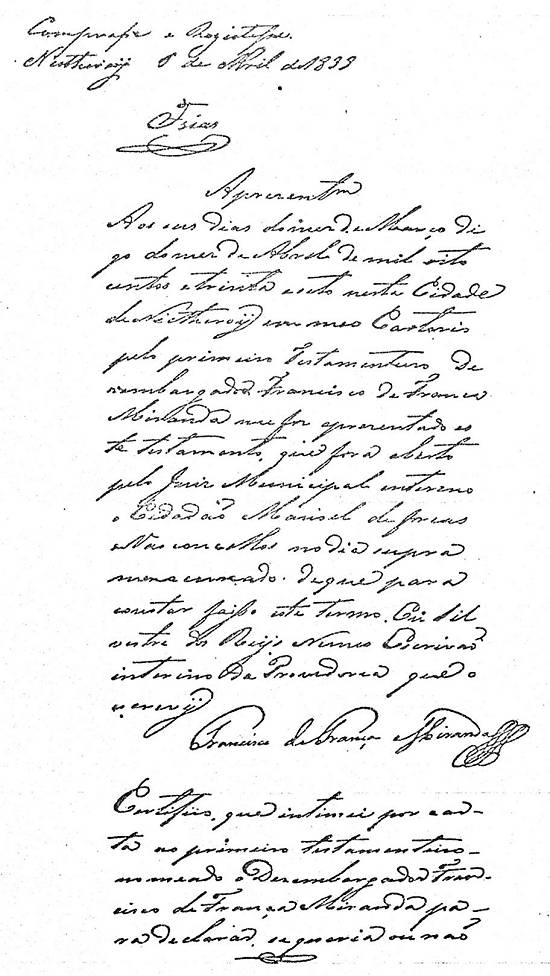 Cumprase e Registese.
Nictheroij 6 de Abril de 1839
Frias
Apresentm
Aos seis dias do mez de Março di
go do mez de Abril de mil oito
centos e trinta e oito nesta Cidade
de Nictheroij em meo Cartorio
pelo primeiro Testamenteiro De
zembargador Francisco de França
Miranda me foi apresentado es
te testamento, que fora aberto
pelo Juiz Municipal interino
o Cidadão Manoel de Frias
e Vasconcellos no dia supra
mencionado. de que para
constar faço este termo. Eu Sil
vestre dos Reijs Nunes Escrivão
interino da Provedoria que o
escrevij
Francisco de França Miranda
Certifico, que intimei por car-
ta ao primeiro testamenteiro
nomeado o Dezembargador Fran-
cisco de França Miranda pa-
ra declarar, se queria ou não